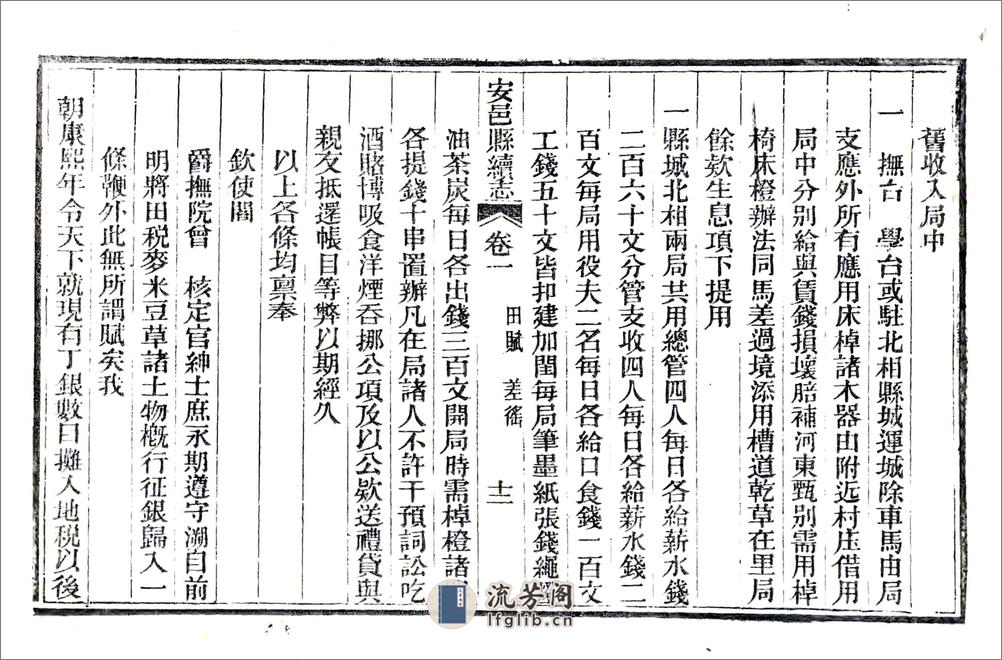 舊收入局中
一　撫台　學台或駐北相縣城運城除車馬由局
支應外所有應用床棹諸木器由附近村庄借用
局中分別給與賃錢損壞賠補河東甄別需用棹
椅床橙辦法同馬差過境添用槽道乾草在里局
餘欵生息項下提用
一縣城北相兩局共用總管四人每日各給薪水錢
二百六十文分管支收四人每日各給薪水錢二
百文每局用役夫二名每日各給口食錢一百文
工錢五十文皆扣建加閏每局筆墨紙張錢繩
安邑縣續志　卷一　田賦　差徭　十二
油茶炭每日各出錢三百文開局時需棹橙諸
各提錢十串置辦凡在局諸人不許干預詞訟吃
酒賭博吸食洋煙吞挪公項及以公欵送禮貸與
親友抵還帳目等弊以期經久
以上各條均禀奉
欽使閻
爵撫院曾　核定官紳士庶永期遵守溯自前
明將田税麥米豆草諸土物槪行征銀歸入一
條鞭外此無所謂賦矣我
朝康熙年令天下就現有丁銀數目攤入地税以後
流芳阁
lfglib.cn